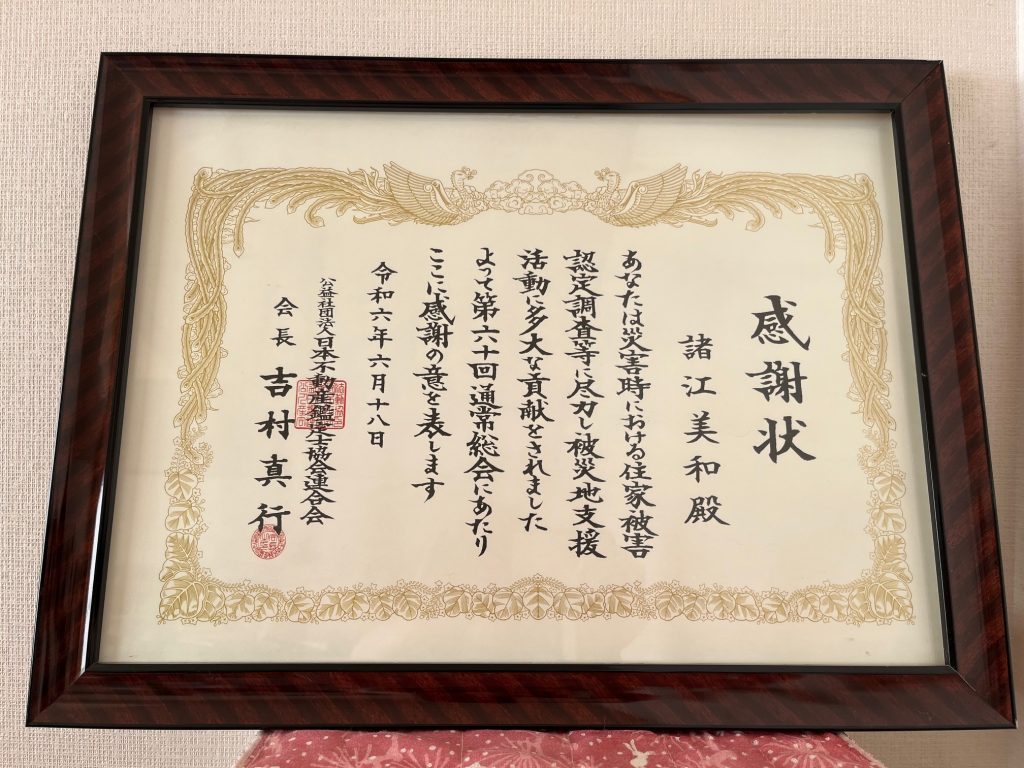 感謝状
諸江美和殿
あなたは災害時における住家被害
認定調査等に尽力し被災地支援
活動に多大な貢献をされました
よって第六十回通常総会にあたり
ここに感謝の意を表します
令和六年六月十八日
公益社団法人日本不動産鑑定士協会連合会
会長 吉村真行